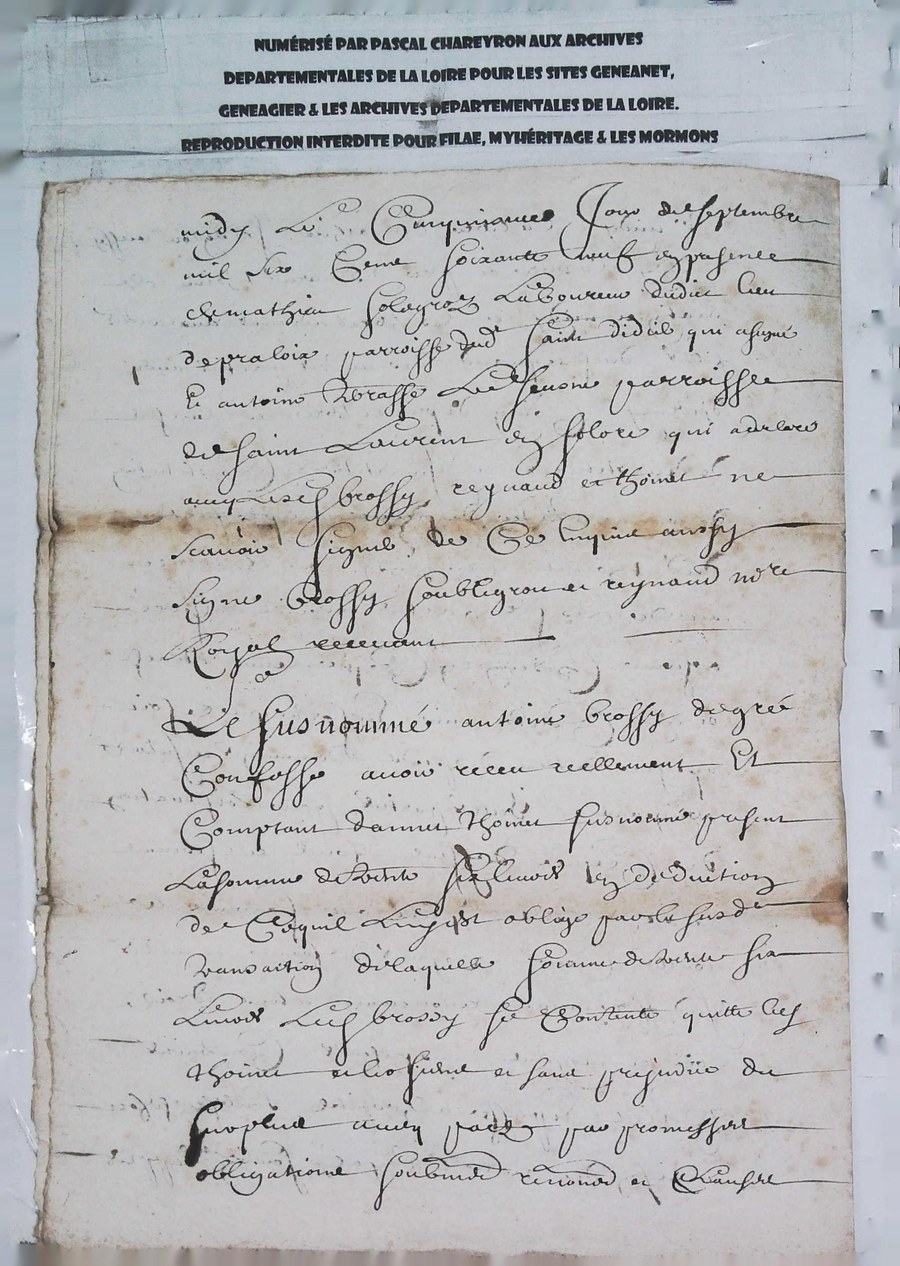 NUMÉRISÉ PAR PASCAL CHAREYRON AUX ARCHIVES
DEPARTEMENTALES DE LA LOIRE POUR LES SITES GENEANET,
GENEAGIER & LES ARCHIVES DEPARTEMENTALES DE LA LOIRE.
REPRODUCTION INTERDITE POUR FILAE, MYHÉRITAGE & LES MORMONS
midy Le Jour de septembre
mil six Cens soixante neuf en presence
de mathieu Laboureur dudict lieu
de parroisse dud Saint didiel qui a signé
Et antoine parroisse
de saint Laurent en solore qui
brossy reynaud et thoinet ne
scavoir signer de Ce Enquis aussy
signe brossy et reynaud no.re
Royal recevant
Le susnommé antoine brossy de gré
Confesse avoir receu reellement Et
Comptant dannet thoinet susnommé present
La somme de trente six livres En deduction
de Ce quil Luy est oblige par la susd.
transaction de laquelle somme de trente six
Livres Led brossy se Contente quitte led
thoinet et les siens et sans prejudice du
surplus ainsy par promesses
obligations soubmis renon et Clauses